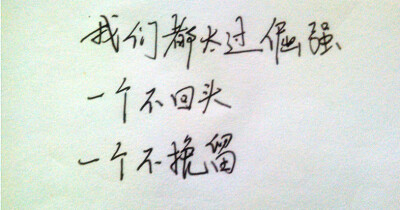 我们都太过倔强
一个不回头
一个不挽留